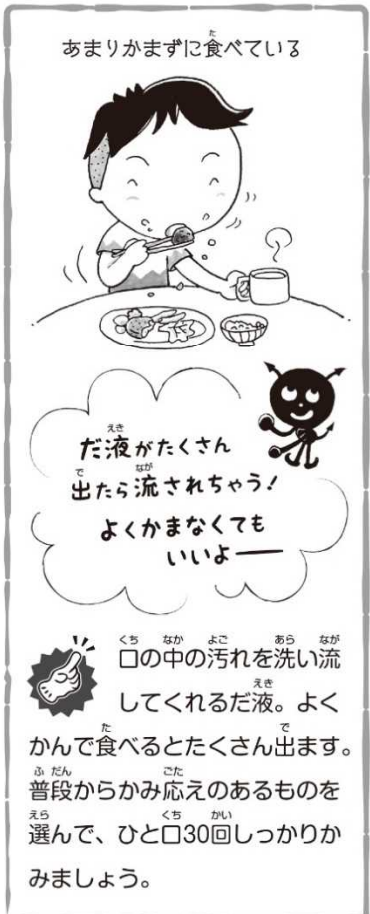 あまりかまずに食べている
だ液がたくさん
出たら流されちゃう!
よくかまなくても
いいよ――
口の中の汚れを洗い流
してくれるだ液。よく
かんで食べるとたくさん出ます。
普段からかみ応えのあるものを
選んで、ひと口30回しっかりか
みましょう。